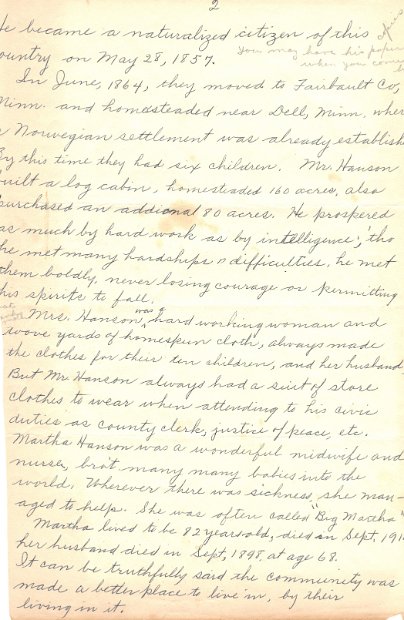 2
He became a naturalized citizen of this
You may have his papers
when you come
country on May 28, 1857.
In June, 1864, they moved to Fairbault Co,
Minn. and homesteaded near Dell, Minn, where
a Norwegian settlement was already establish
By this time they had six children. Mr. Hanson
built a log cabin, homesteaded 160 acres, also
purchased an addional 80 acres. He prospered
as much by hard work as by intelligence; tho
he met many hardships & difficulties, he met
them boldly, never losing courage or permitting
his spirits to fall.
Mrs. Hanson was a hard working woman and
wove yards of homespun cloth, always made
the clothes for their ten children, and her husband
But Mr Hanson always had a suit of store
clothes to wear when attending to his civic
duties as county clerk, justice of peace, etc.
Martha Hanson was a wonderful midwife and
nurse, brot many many babies into the
world. Wherever there was sickness, she man-
aged to help. She was often called "Big Martha"
Martha lived to be 82 years old, died in Sept, 191
her husband died in Sept, 1898, at age 68.
It can be truthfully said the community was
made a better place to live in, by their
living in it.